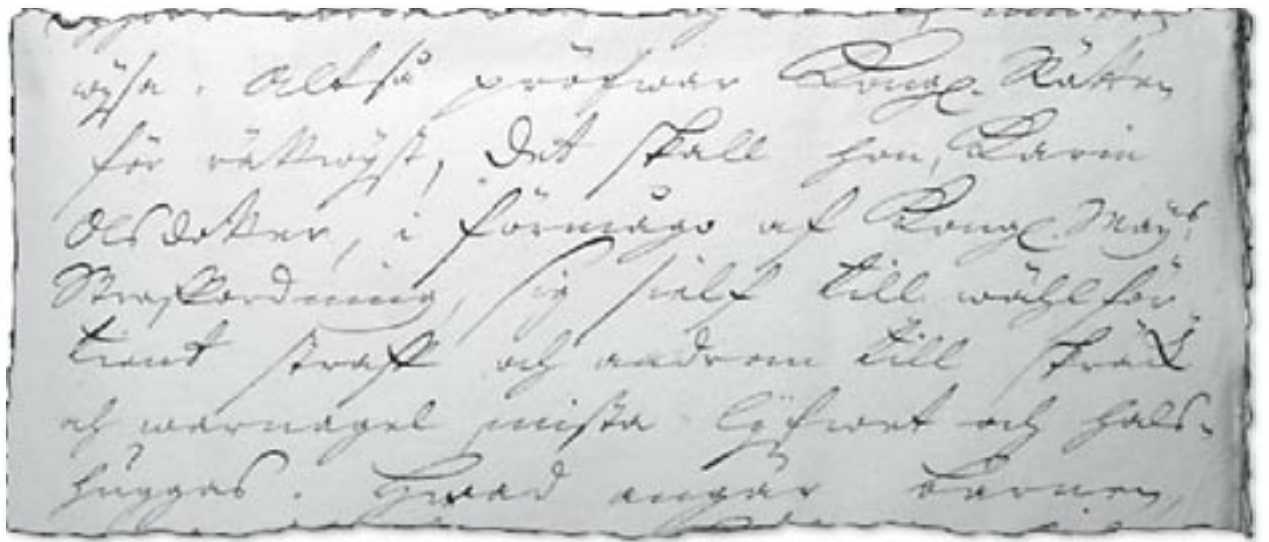 wÿsa. Altså pröfwar Kongl. Rätten
för rättwÿst, det skall hon, Karin
Olsdotter, i förmågo af Kongl. Maÿ:ts
Straffordning, sig sielf till wählför-
tient straff och androm till skräck
och warnagel mista lÿfwet och hals-
huggas. Hwad angår barnen,